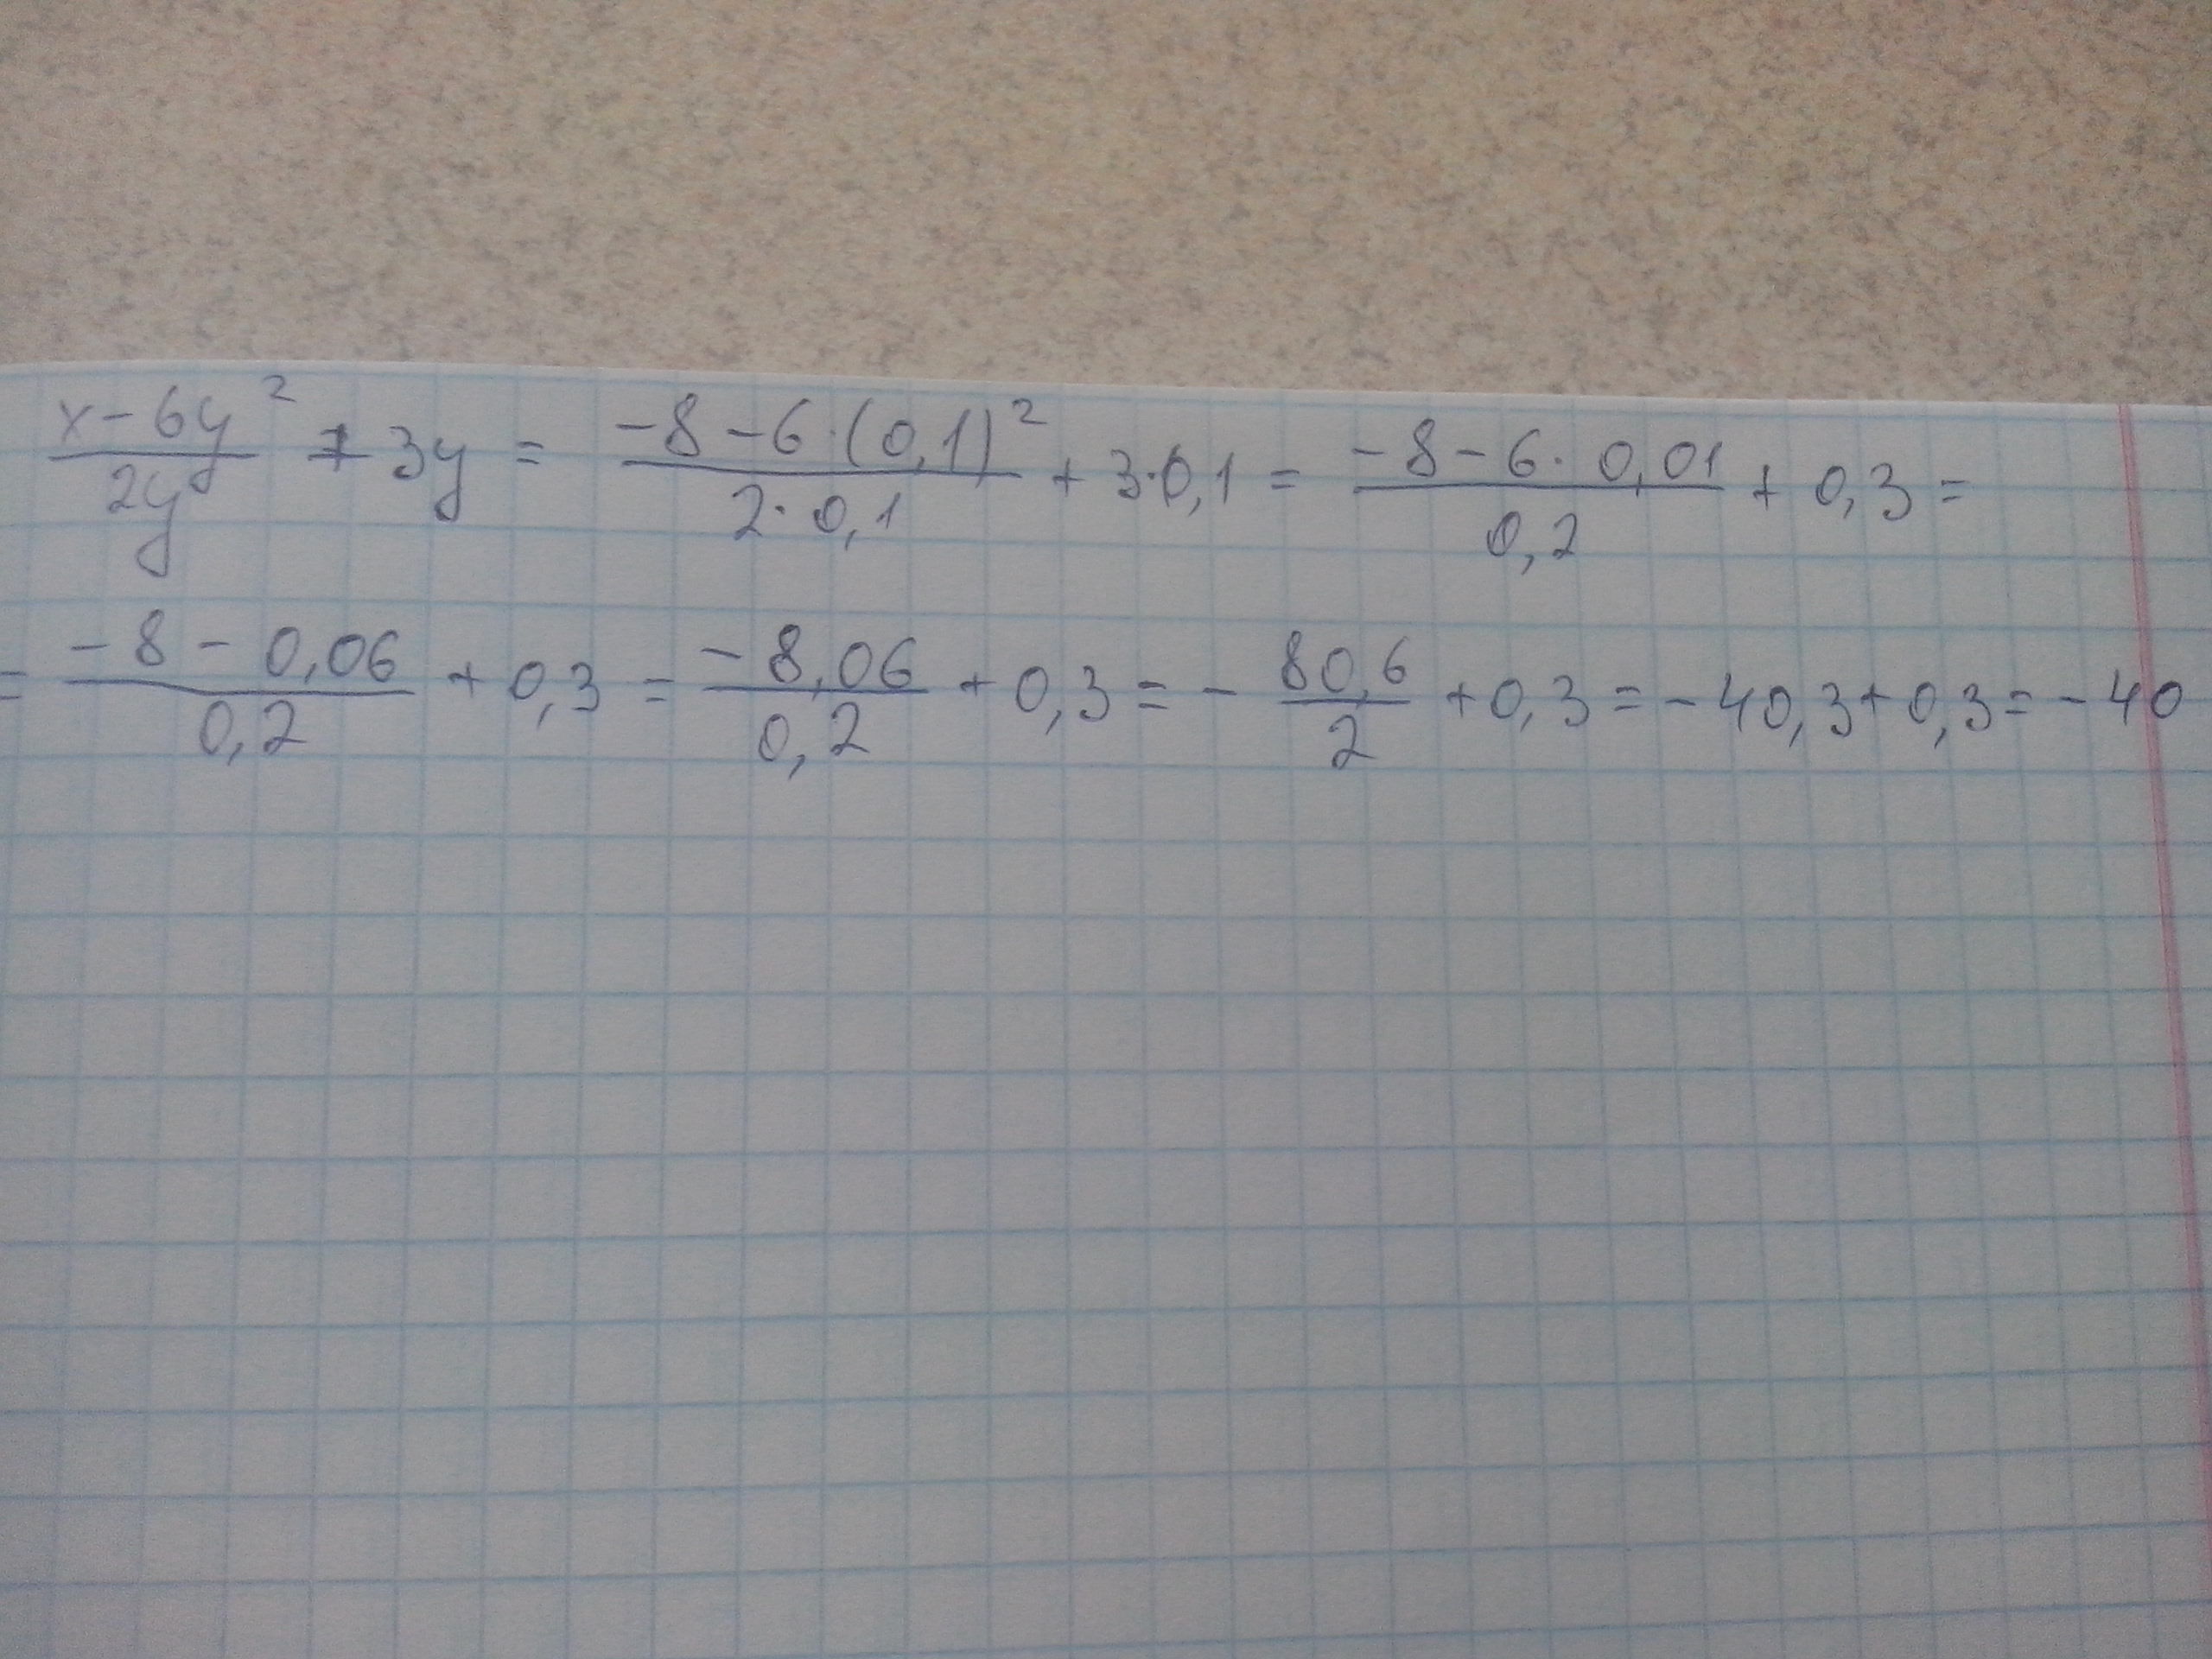 (x-6y²)/(2y) + 3y = (-8-6·(0,1)²)/(2·0,1) + 3·0,1 = (-8-6·0,01)/(0,2) + 0,3 =
= (-8-0,06)/(0,2) + 0,3 = (-8,06)/(0,2) + 0,3 = - (80,6)/(2) + 0,3 = -40,3+0,3= -40